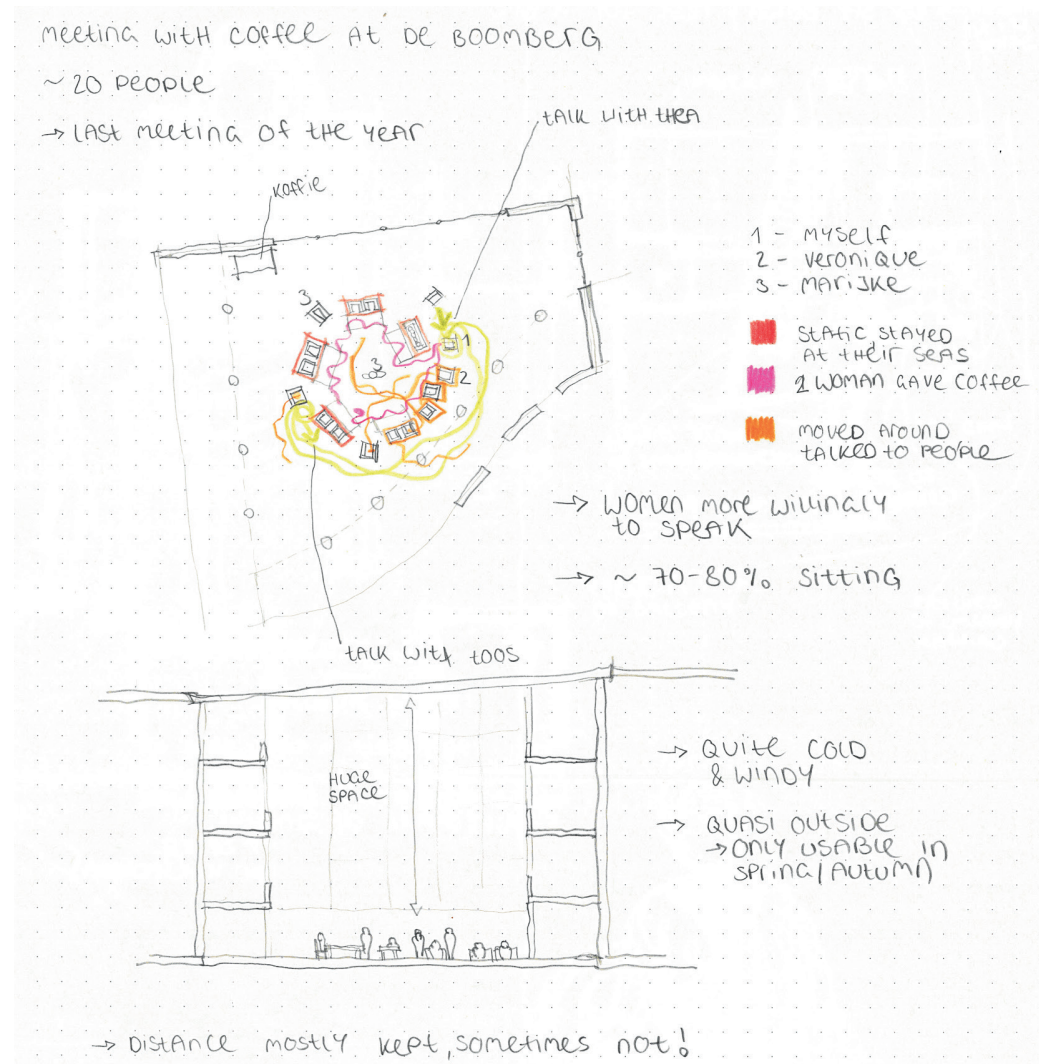 meeting with coffee at de Boomberg
~ 20 people
→ last meeting of the year
talk with thea
koffie
1 - myself
2 - veronique
3 - marijke
static, stayed
at their seas
2 woman gave coffee
moved around
talked to people
3
1
2
3
→ women more willingly
to speak
→ ~ 70-80% sitting
talk with toos
huge
space
→ quite cold
& windy
→ quasi outside
→ only usable in
spring/autumn
→ distance mostly kept, sometimes not!